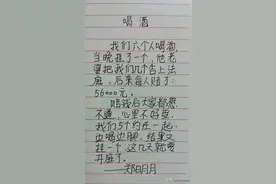 喝酒
我们六个人喝酒,
当晚挂了一个,他老
婆把我们几个告上法
庭,后果每人赔了:
56000元。
赔钱后大家都想
不通,心里不好受,
我们5个约在一起,
边喝边聊,结果又
挂一个,这几天就要
开庭了。
——郑阳月月